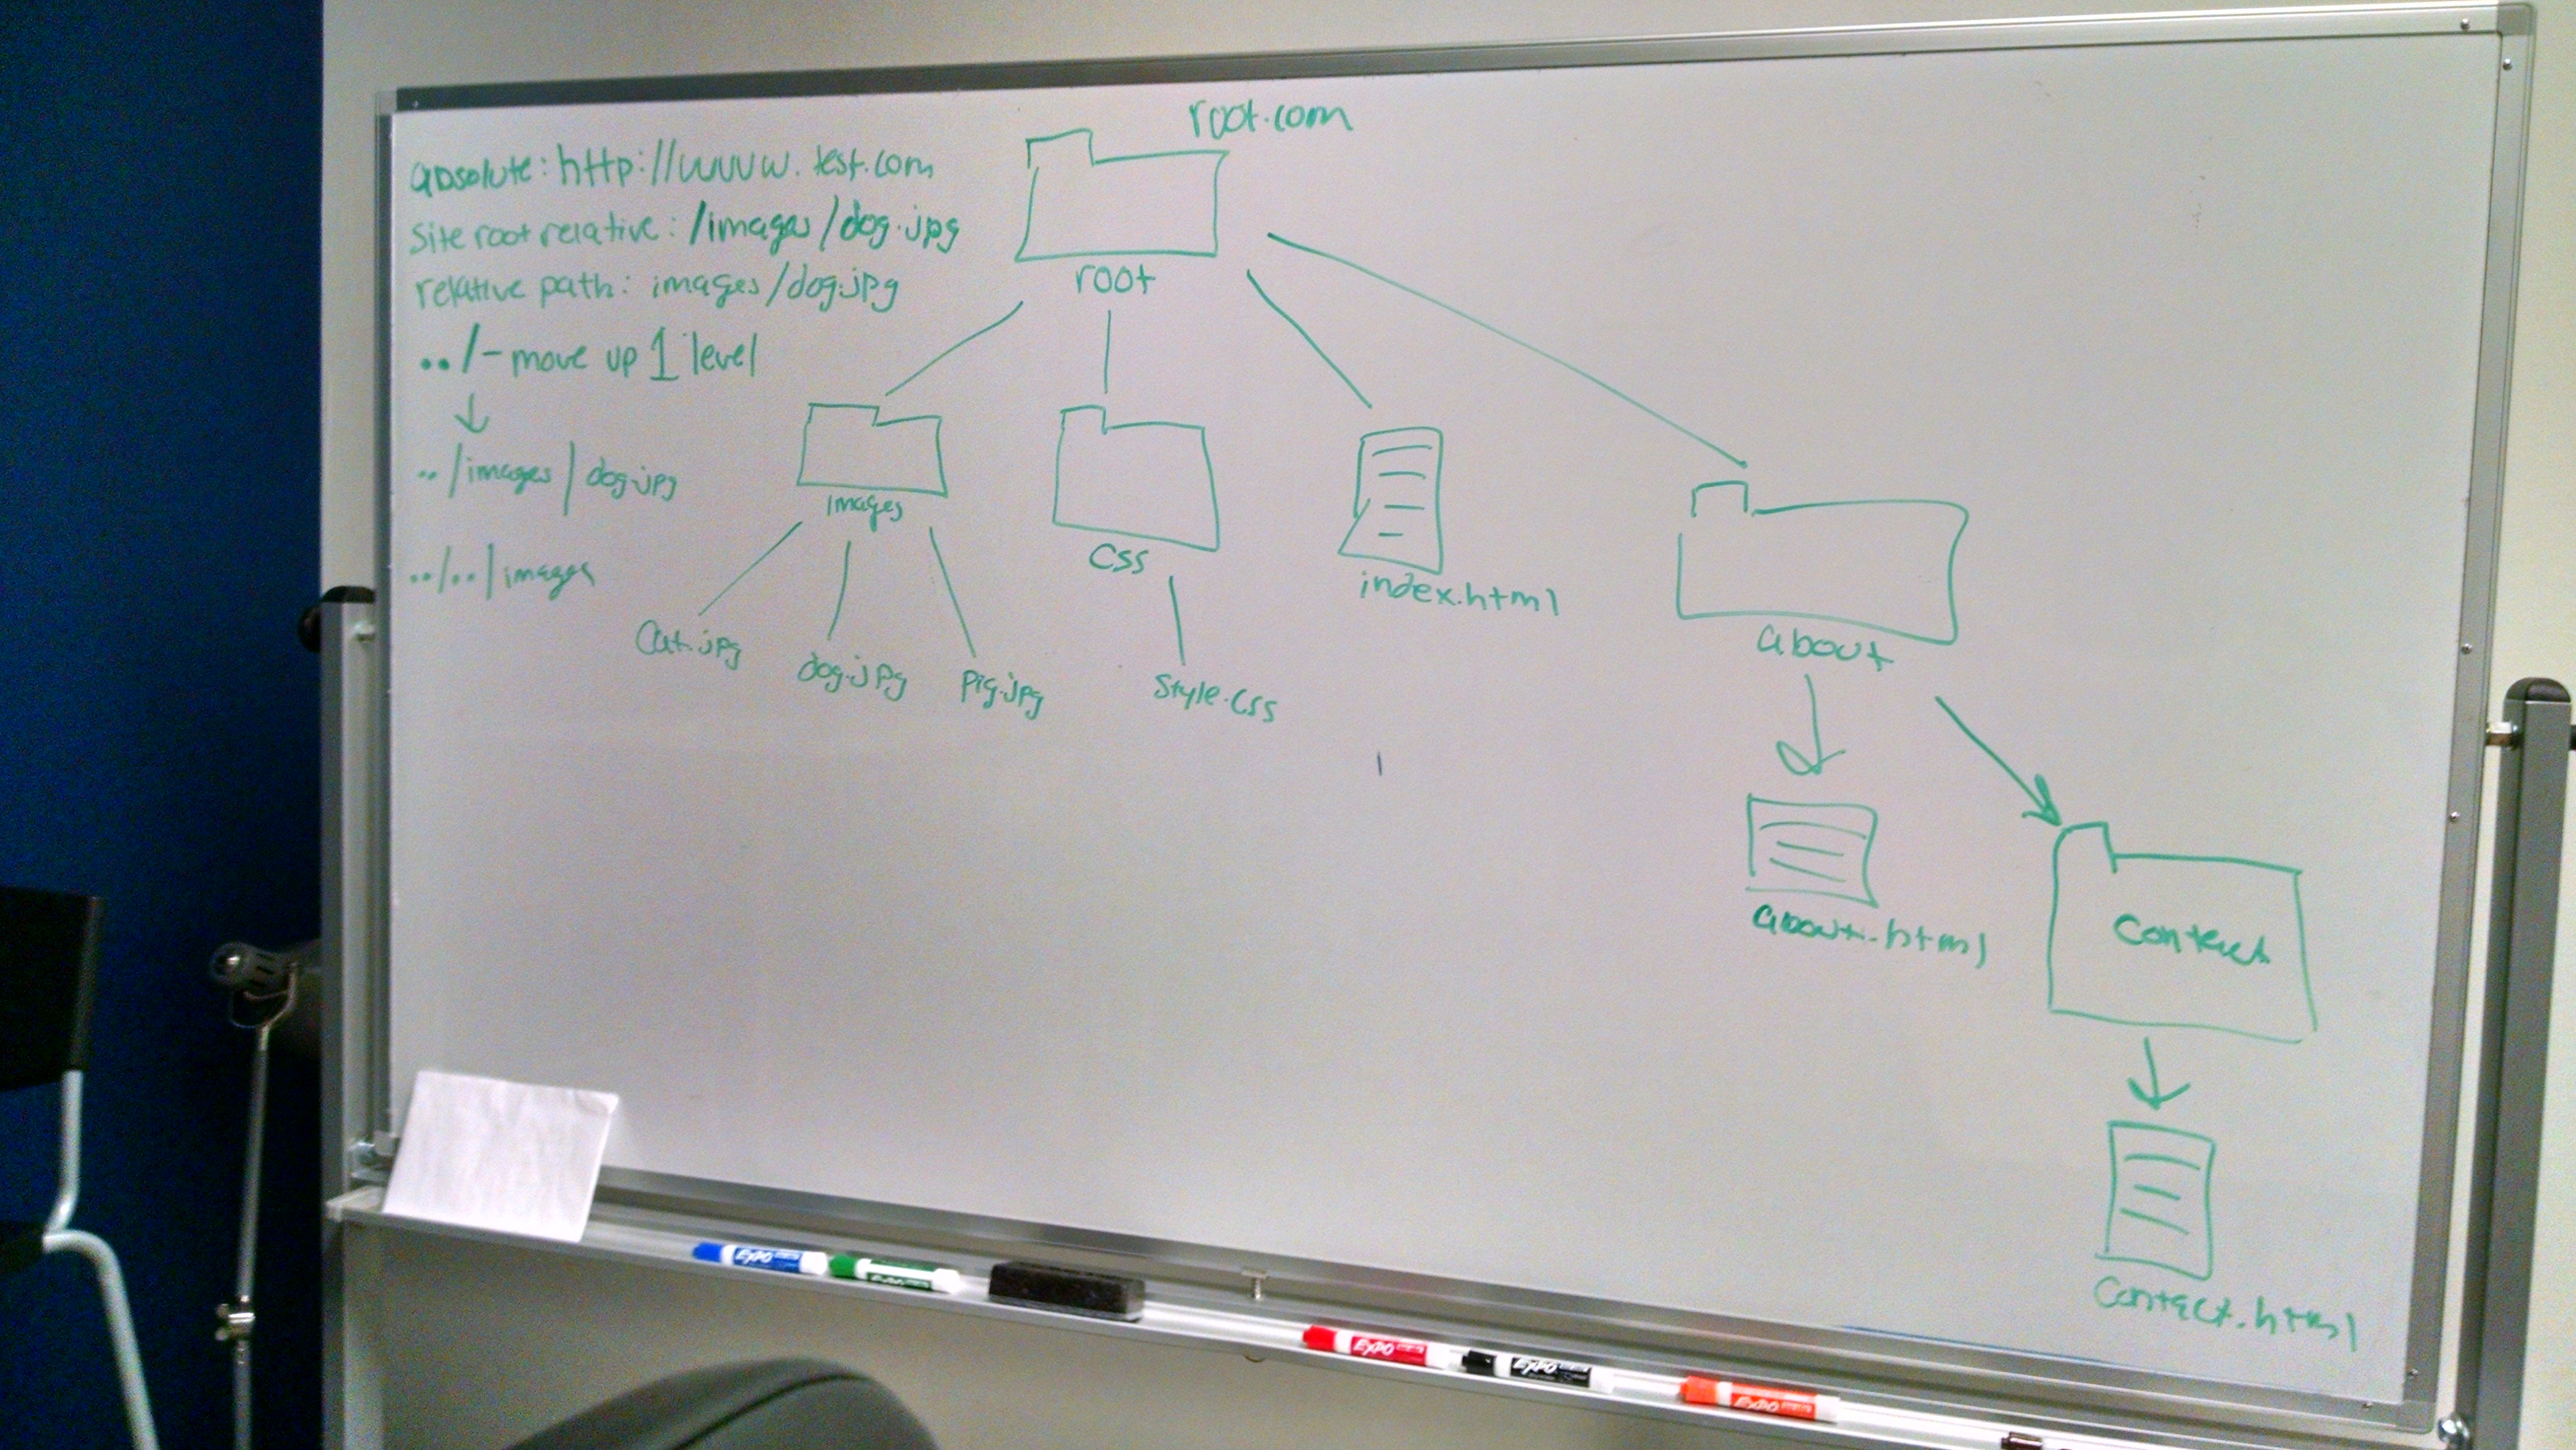 absolute: http://www.test.com
Site root relative: /images/dog.jpg
relative path: images/dog.jpg
../ - move up 1 level
../images/dog.jpg
../../images
root.com
root
images
css
index.html
about
Cat.jpg
dog.jpg
pig.jpg
Style.css
about.html
Contact
Contact.html
EXPO
EXPO
EXPO
EXPO